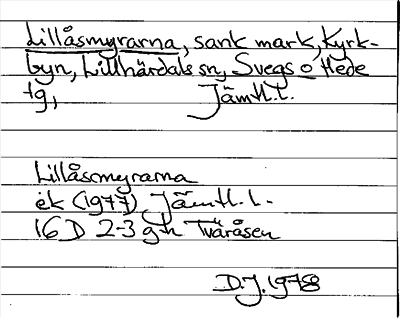 Lillåsmyrarna, sank mark, Kyrk-
byn, Lillhärdals sn, Svegs o Hede
tg, Jämtl.l.
Lillåsmyrarna
ek (1977) Jämtl.l.
16D 2-3 g-h Tväråsen
D.J. 1978